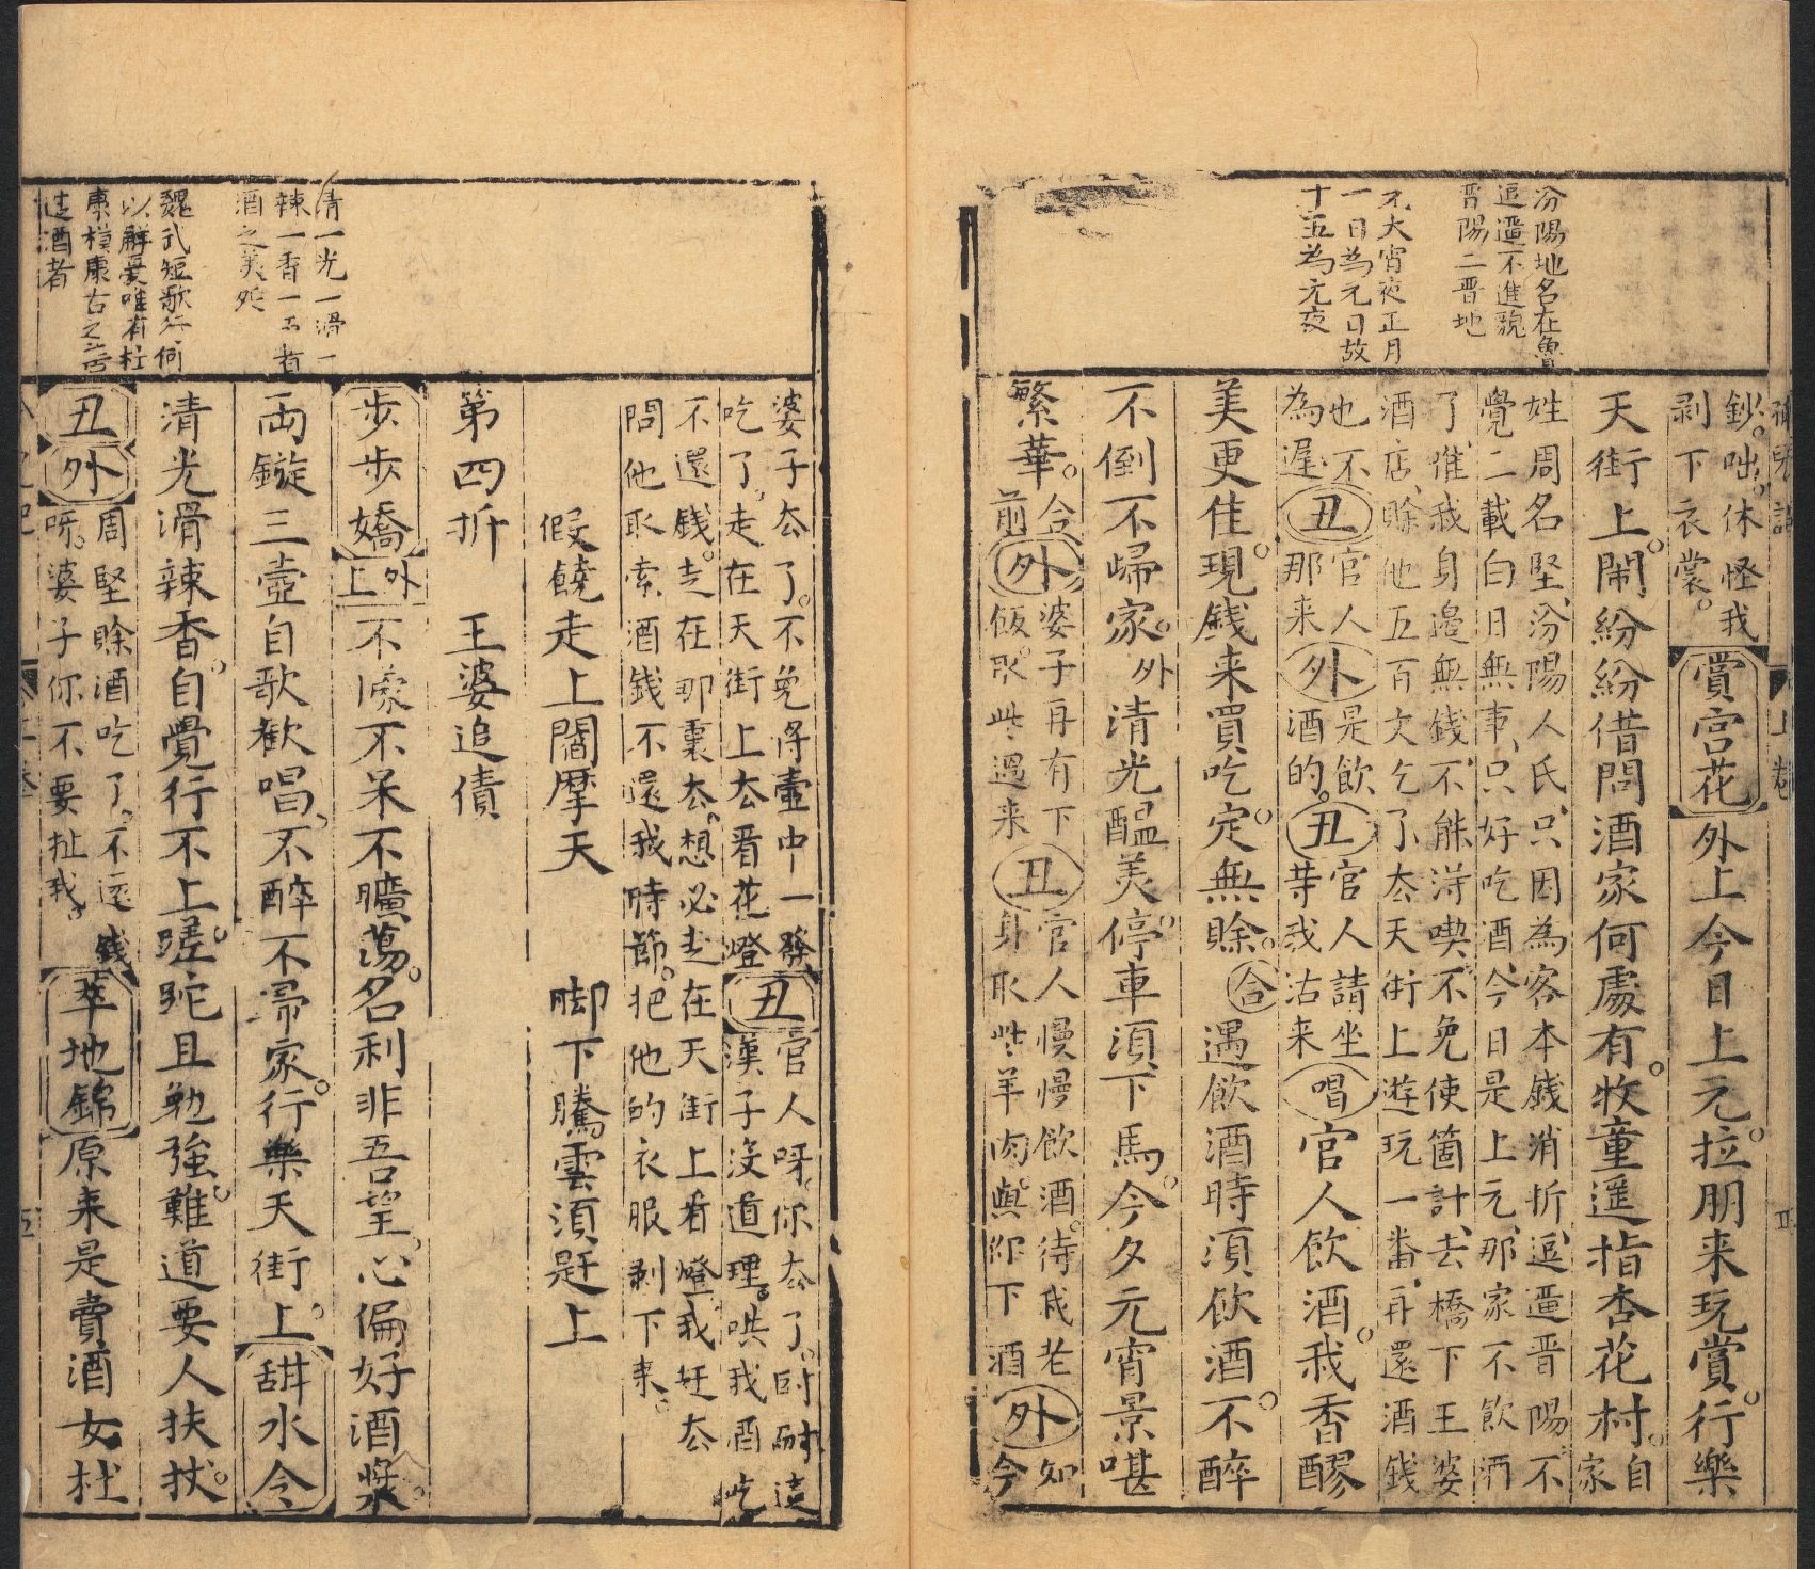 汾陽地名在魯
迍邅不進貌
晋陽二晋地
元大宵夜正月
一日為元日故
十五為元夜
鈔。咄。休怪我
剥下衣裳。
賞宫花
外上今日上元。拉朋来玩賞。行樂
天街上。鬧紛紛借問酒家何處有。牧童遥指杏花村。
自家
姓周名堅汾陽人氏只因為客本錢消折迍邅晋陽不
覺二載白日無事只好吃酒今日是上元那家不飲洒
了惟我身邉無錢不能淂喫不免使箇計去橋下王婆
酒店賒他五百文乞了厺天街上遊玩一番再還酒錢
也不
為遲
丑
官人
那来
外
是飲
酒的。
丑
官人請坐
等我沽来
唱
官人飲酒。我香醪
美更佳。現錢来買吃定。無賒。
合
遇飲酒時湏飲酒。不醉
不倒不㱕家。
外
清光醖美。停車湏下馬。今夕元宵景堪
繁華。
合
前
外
婆子再有下
飯取些過来
丑
官人慢慢飲酒。待我老
身取些羊肉。與你下酒
外
如
今
婆子厺了。不免将壷中一發
吃了。走在天街上厺看花燈
丑
官人呀。你厺了。时耐這
漢子没道理。哄我酒吃
不還錢。走在那裏厺。想必走在天街上看燈。我赶厺
問他取索酒錢不還我時節。把他的衣服剥下来。
假饒走上閻摩天
脚下騰雲湏赶上
第四折
王婆追債
清一光一滑一
辣一香一五者
酒之美処
魏武短歌行何
以解憂唯有杜
康
造酒者
步步嬌
外上
不痴不呆不曠蕩。名利非吾望。心偏好酒漿。
两鏇三壼自歌歡唱。不醉不㱕家。行樂天街上。
甜水令
清光滑辣香。自覺行不上。蹉跎且勉強。難道要人扶扙。
丑
外
周堅賒酒吃了。不還錢
呀。婆子你不要扯我。
萃地錦
原来是賣酒女杜